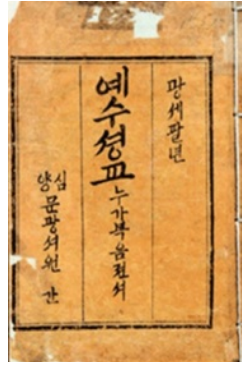 광셔팔년
예수셩교누가복음젼셔
심양문광셔원 간